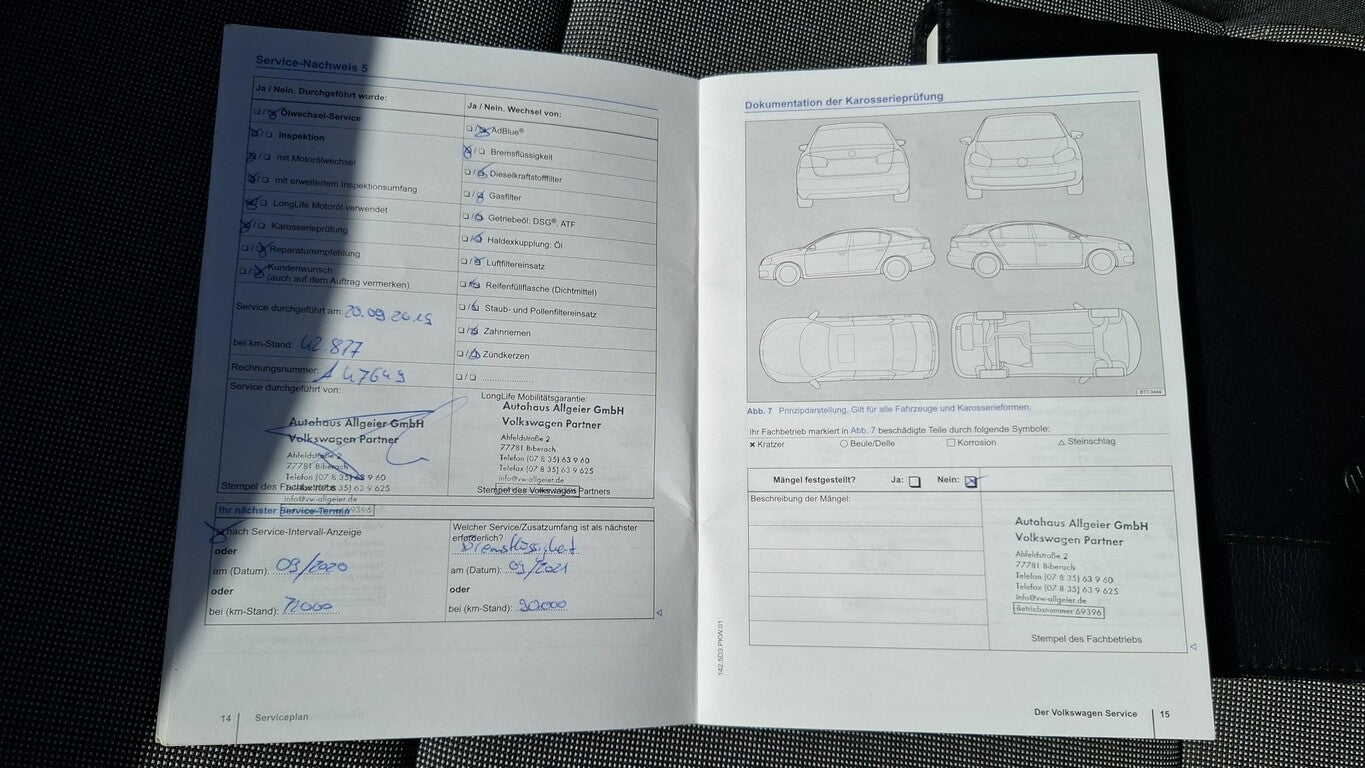 Service-Nachweis 5
Ja / Nein. Durchgeführt wurde:
Ölwechsel-Service
Inspektion
mit Motorölwechsel
mit erweitertem Inspektionsumfang
LongLife Motoröl verwendet
Karosserieprüfung
Reparaturempfehlung
Kundenwunsch
(auch auf dem Auftrag vermerken)
Service durchgeführt am: 20.09 2019
bei km-Stand: 42.877
Rechnungsnummer: A 47649
Service durchgeführt von:
Autohaus Allgeier GmbH
Volkswagen Partner
Ahfeldstraße 2
77781 Biberach
Telefon (07 8 35) 63 9 60
Telefax (07 8 35) 63 9 625
Stempel des Fachbetriebs
info@vw-allgeier.de
Ja / Nein. Wechsel von:
AdBlue®
Bremsflüssigkeit
Dieselkraftstofffilter
Gasfilter
Getriebeöl: DSG®, ATF
Haldexkupplung: Öl
Luftfiltereinsatz
Reifenfüllflasche (Dichtmittel)
Staub- und Pollenfiltereinsatz
Zahnriemen
Zündkerzen
LongLife Mobilitätsgarantie:
Autohaus Allgeier GmbH
Volkswagen Partner
Ahfeldstraße 2
77781 Biberach
Telefon (07 8 35) 63 9 60
Telefax (07 8 35) 63 9 625
info@vw-allgeier.de
Stempel des Volkswagen Partners
Ihr nächster Service-Termin
nach Service-Intervall-Anzeige
oder
am (Datum): 09/2020
oder
bei (km-Stand): 72000
Welcher Service/Zusatzumfang ist als nächster
erforderlich?
Bremsflüssigkeit
am (Datum): 09/2021
oder
bei (km-Stand): 90000
14 Serviceplan
Dokumentation der Karosserieprüfung
BTT-0449
Abb. 7 Prinzipdarstellung. Gilt für alle Fahrzeuge und Karosserieformen.
Ihr Fachbetrieb markiert in Abb. 7 beschädigte Teile durch folgende Symbole:
× Kratzer ○ Beule/Delle □ Korrosion △ Steinschlag
Mängel festgestellt? Ja: Nein:
Beschreibung der Mängel:
Autohaus Allgeier GmbH
Volkswagen Partner
Ahfeldstraße 2
77781 Biberach
Telefon (07 8 35) 63 9 60
Telefax (07 8 35) 63 9 625
info@vw-allgeier.de
Betriebsnummer 69396
Stempel des Fachbetriebs
142.5D3.PKW.01
Der Volkswagen Service 15